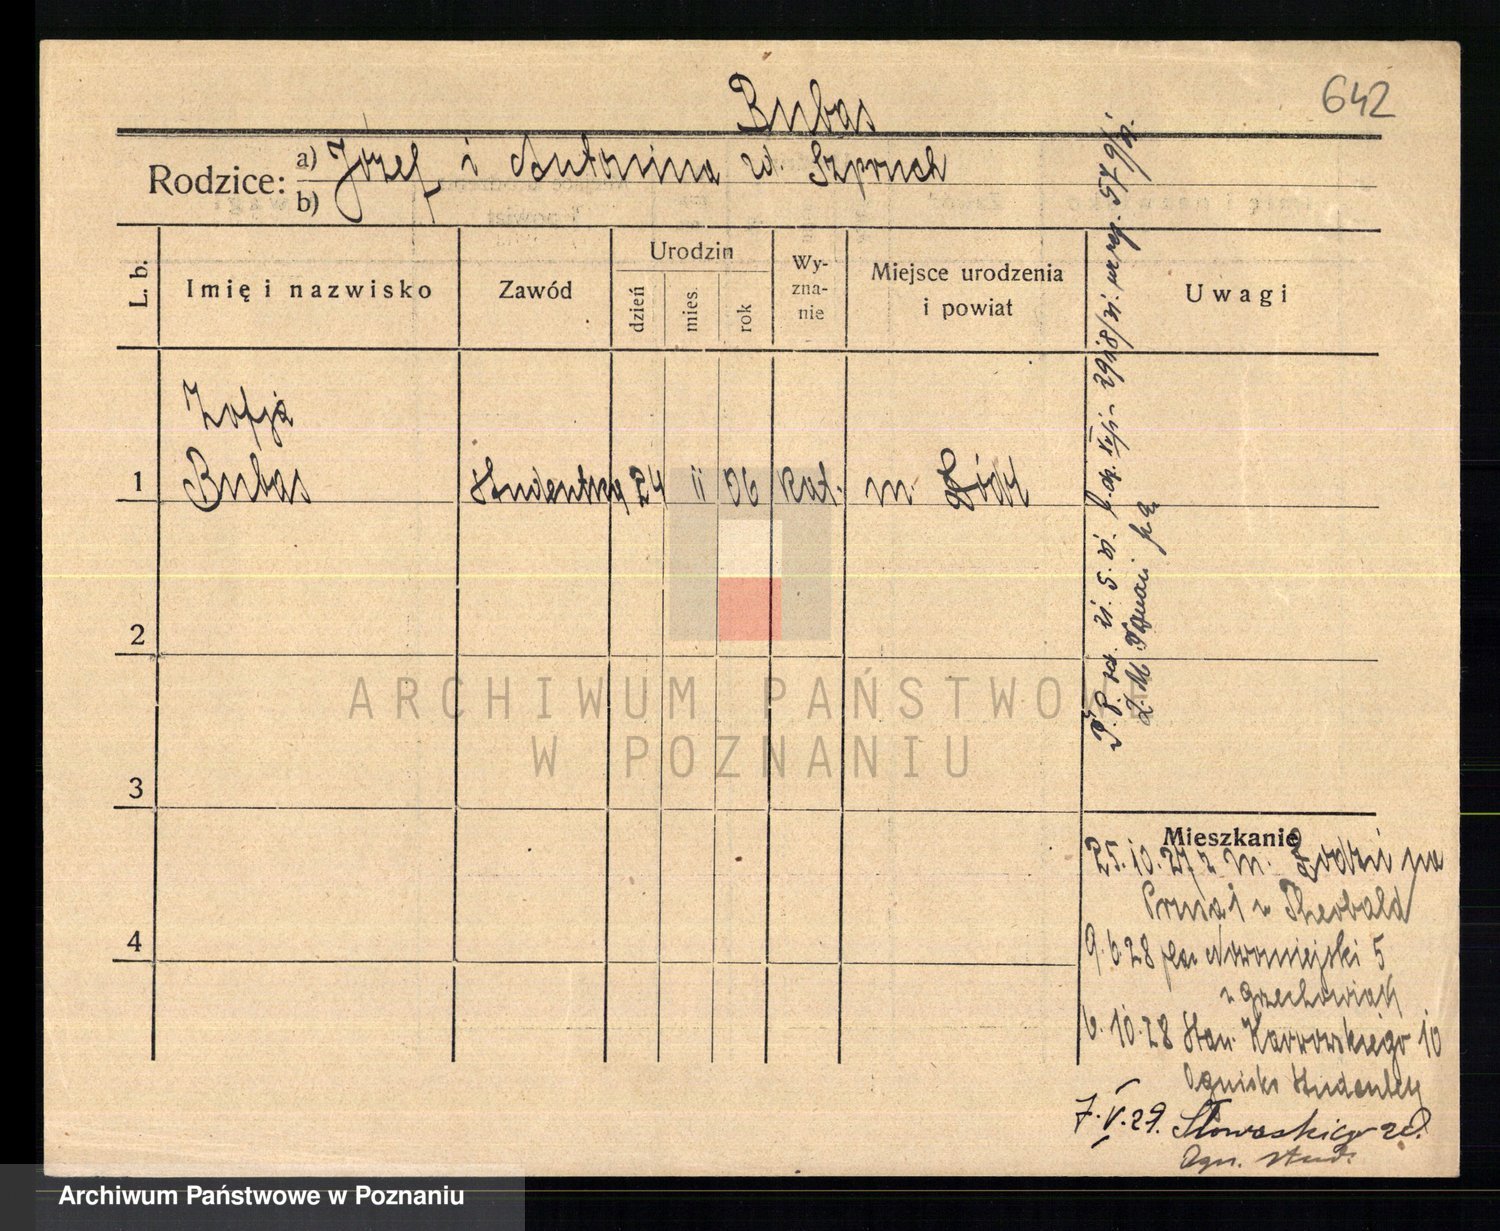 642
Bubas
Rodzice: a) Józef i Antonina zd. Szpruch
b)
L. b.
Imię i nazwisko
Zawód
Urodzin
dzień
mies.
rok
Wy-
zna-
nie
Miejsce urodzenia
i powiat
Uwagi
Zofja
1 Bubas studentka 24 11 06 kat. m Łódź
2
3
4
Mieszkanie
25.10.27 z m. Łodzi na
Prusa 1 u Theobald
9.6.28 plac Nowomiejski 5
u Grzechowiak
6.10.28 Stan. Karwowskiego 10
Ognisko Studentek
7.V.29. Słowackiego 20.
Ogn. stud.
ARCHIWUM PAŃSTWOWE
W POZNANIU
Archiwum Państwowe w Poznaniu